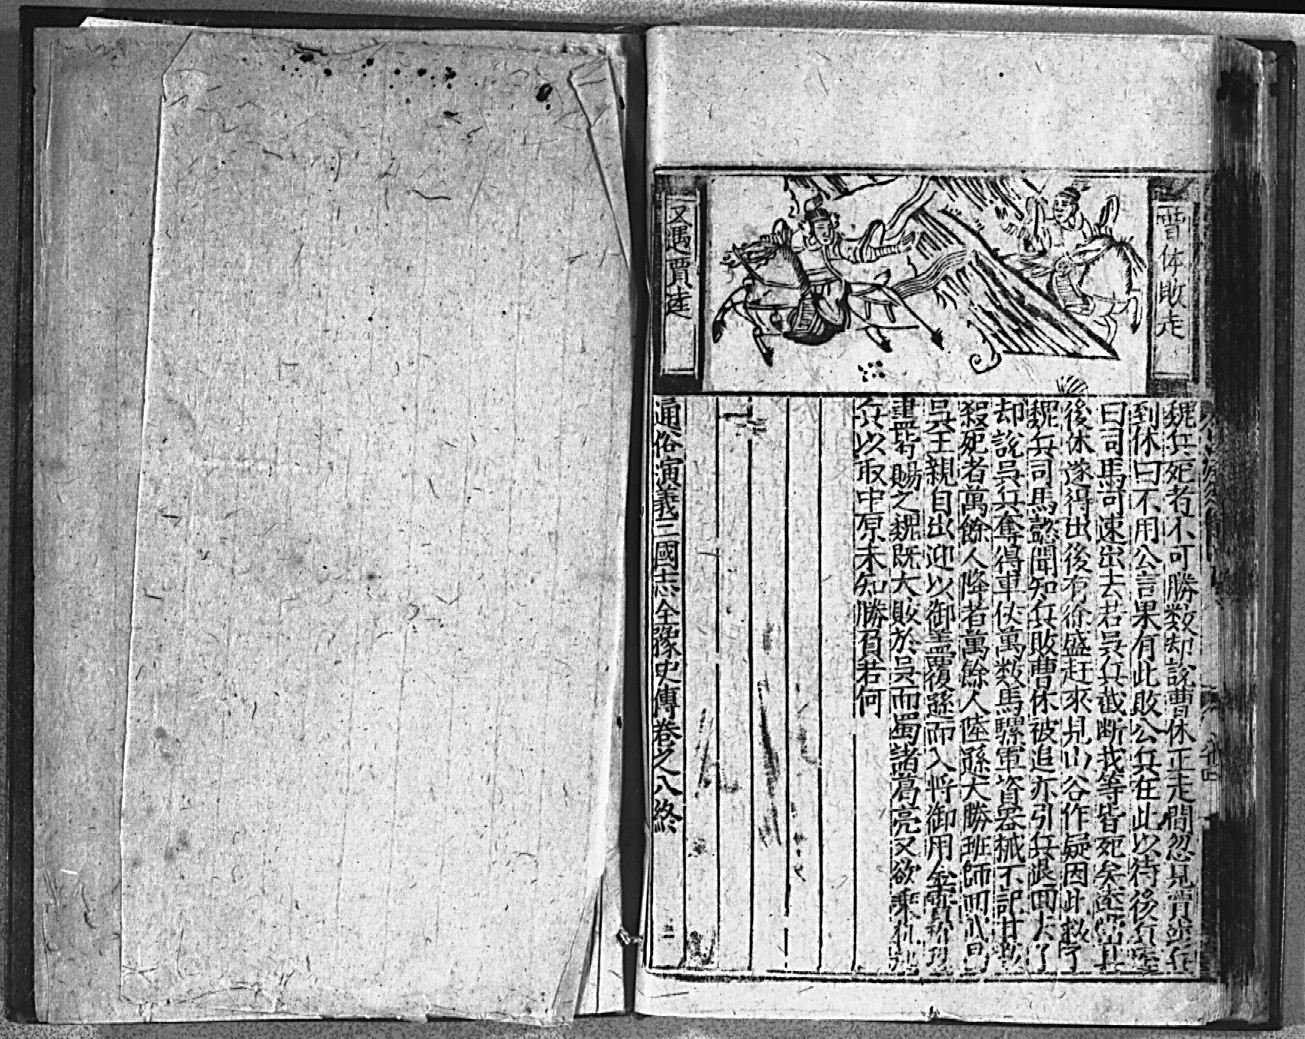 曹休敗走
又遇賈逵
魏兵死者不可勝数却說曹休正走間忽見賈逵兵
到休曰不用公言果有此敗公兵在此以待後兵
曰司馬可速出去若吳兵截断我等皆死矣逵
後休遂得出後有徐盛赶來見山谷作疑因此救了
魏兵司馬懿聞知兵敗曹休被追亦引兵退回大
却說吳兵奪得車仗萬数馬騾軍資器械不記其数
殺死者萬餘人降者萬餘人陸遜大勝班師回
吳王親自出迎以御盖覆遜而入将御用
盡皆賜之魏既大敗於吳而蜀諸葛亮又欲乘
兵以取中原未知勝負若何
通俗演義三國志全像史傳卷之八終